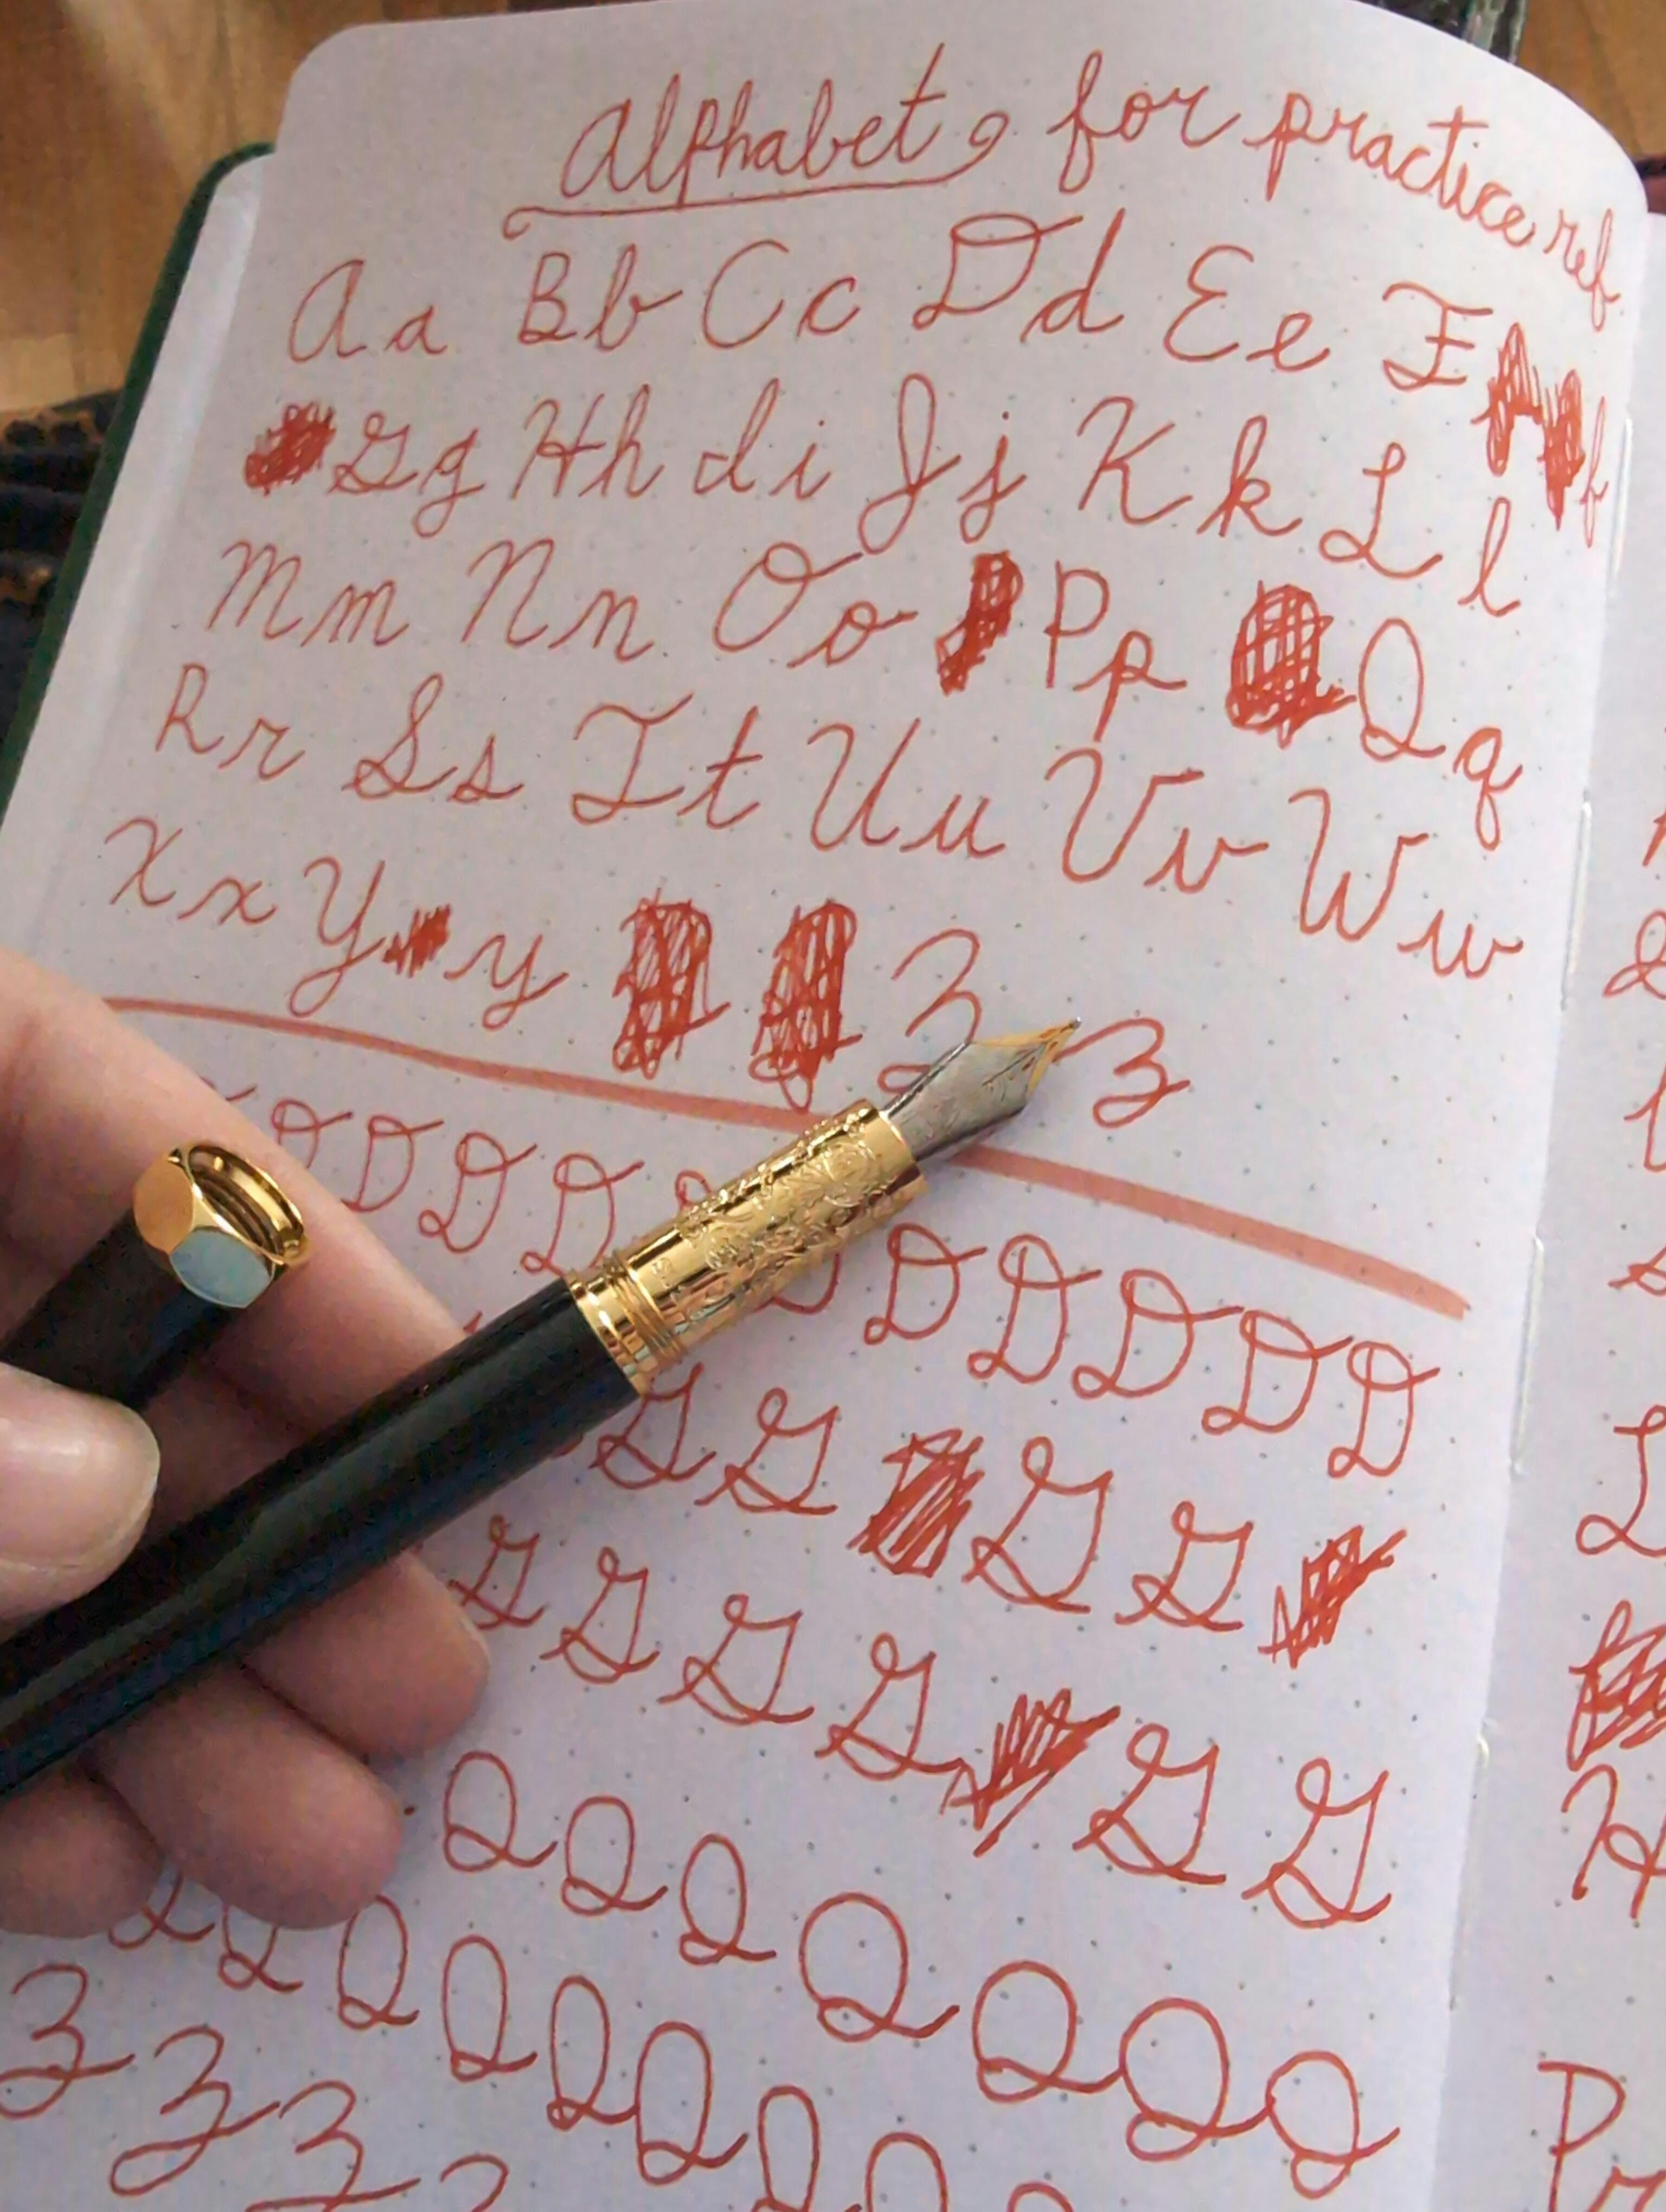 Alphabet, for practice ref
Aa Bb Cc Dd Ee F f
Gg Hh Ii Jj Kk Ll
Mm Nn Oo Pp Qq
Rr Ss Tt Uu Vv Ww
Xx Yy Zz
D D D D D D D D D
G G G G
G G G G G G
Q Q Q Q Q Q Q
Q Q Q Q Q Q Q
Z Z Z
L
H
Pr